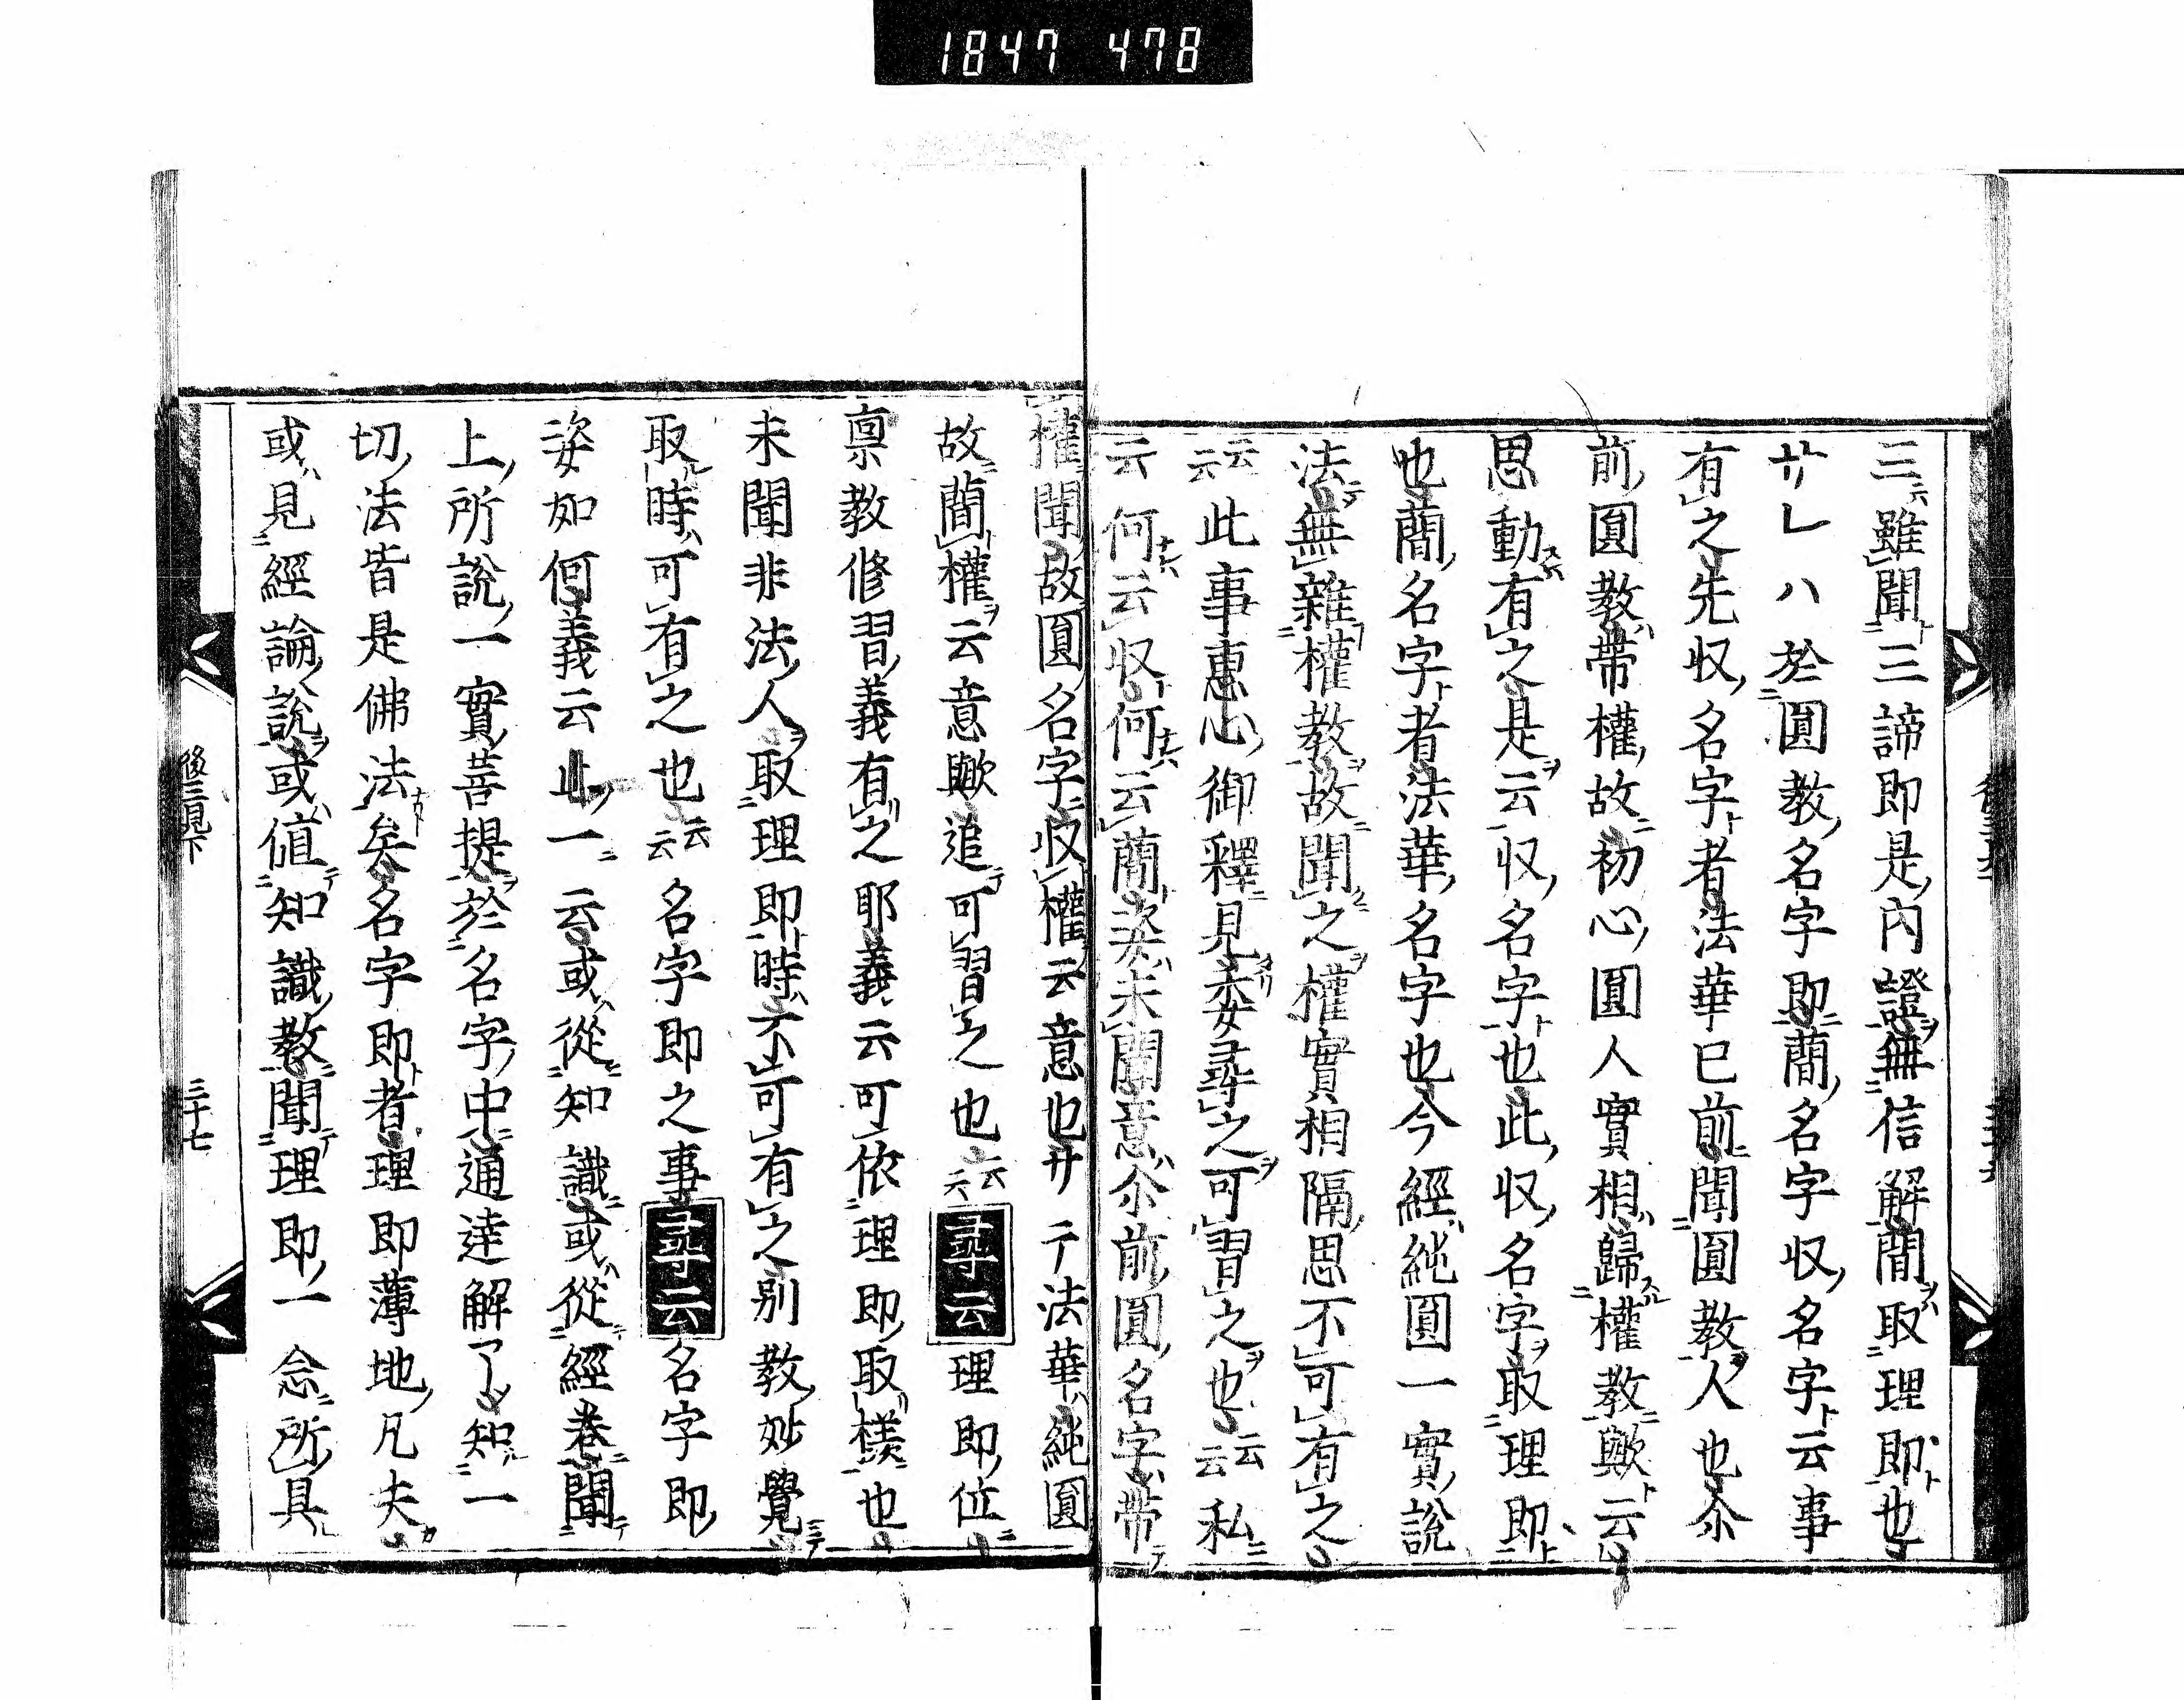 1847 478
三雖聞三諦即是內證無信解簡取理即也
サレハ於圓教名字即簡名字収名字云事
有之先収名字者法華已前聞圓教人也尒
前圓教帶權故初心圓人實相歸權教歟云
思動有之是云収名字也此収名字取理即
也簡名字者法華名字也今經純圓一實說
法無雜權教故聞之權實相隔思不可有之
云云此事惠心御釋見委尋之可習之也云云私
云何云収何云簡姿未聞意尒前圓名字帶
權聞故圓名字収權云意也サテ法華純圓
故簡權云意歟追可習之也云云尋云理即位
禀教修習義有之耶義云可依理即取樣也
未聞非法人取理即時不可有之別教妙覺
取時可有之也云云名字即之事尋云名字即
姿如何義云此一云或從知識或從經卷聞
上所說一實菩提於名字中通達解了知一
切法皆是佛法矣名字即者理即薄地凡夫
或見經論說或值知識教聞理即一念所具
後三見下
三十七